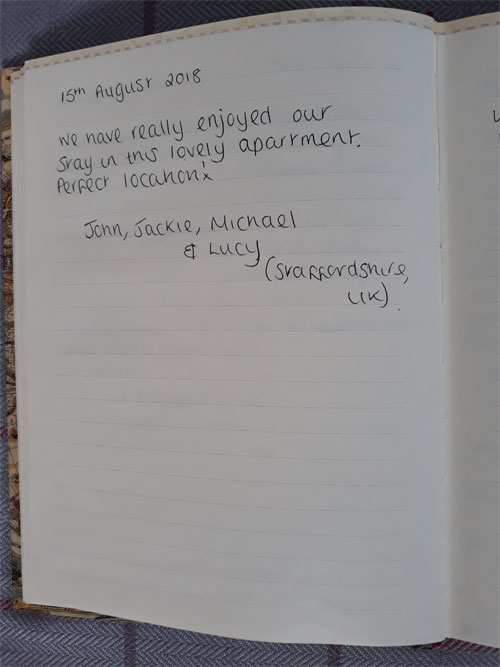 15th August 2018
We have really enjoyed our
stay in this lovely apartment.
Perfect location! x
John, Jackie, Michael
& Lucy
(Staffordshire,
UK).